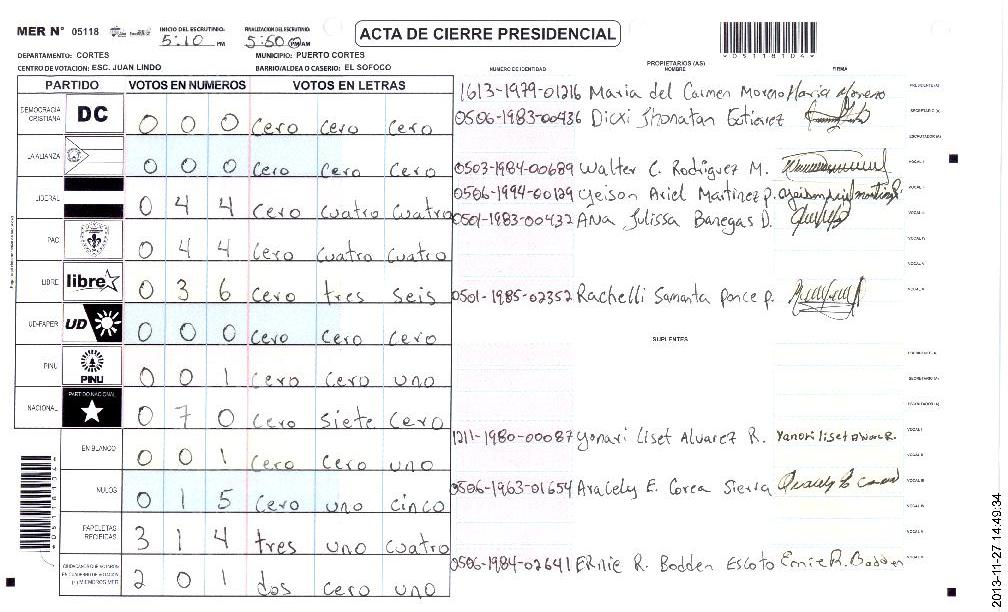 MER N° 05118
INICIO DEL ESCRUTINIO: 5:10 PM
FINALIZACION DEL ESCRUTINIO: 5:50 PM AM
ACTA DE CIERRE PRESIDENCIAL
05118104
DEPARTAMENTO: CORTES
MUNICIPIO: PUERTO CORTES
CENTRO DE VOTACION: ESC. JUAN LINDO
BARRIO/ALDEA O CASERIO: EL SOFOCO
PARTIDO VOTOS EN NUMEROS VOTOS EN LETRAS
DEMOCRACIA CRISTIANA DC 0 0 0 Cero Cero Cero
LA ALIANZA 0 0 0 Cero Cero Cero
LIBERAL 0 4 4 Cero Cuatro Cuatro
PAC 0 4 4 Cero Cuatro Cuatro
LIBRE libre 0 3 6 Cero tres seis
UD-FAPER UD 0 0 0 Cero Cero Cero
PINU PINU 0 0 1 Cero Cero uno
NACIONAL PARTIDO NACIONAL 0 7 0 Cero siete Cero
EN BLANCO 0 0 1 Cero Cero uno
NULOS 0 1 5 Cero uno cinco
PAPELETAS RECIBIDAS 3 1 4 tres uno cuatro
CIUDADANOS QUE VOTARON EN CUADERNO DE VOTACION (+) MIEMBROS MER 2 0 1 dos Cero uno
05118104
NUMERO DE IDENTIDAD PROPIETARIOS (AS) NOMBRE FIRMA
1613-1979-01216 Maria del Carmen Moreno Maria Moreno PRESIDENTE (A)
0506-1983-00436 Dicxi Jhonatan Gutierrez SECRETARIO (A)
ESCRUTADOR (A)
0503-1984-00689 Walter C. Rodriguez M. VOCAL I
0506-1994-00129 Yeison Ariel Martinez p.
0501-1983-00432 Ana Julissa Banegas D.
0501-1985-02352 Rachelli Samanta Ponce p.
SUPLENTES
1211-1980-00087 Yonari Liset Alvarez R.
0506-1963-01654 Aracely E. Corea Sierra
0506-1984-02641 ERnie R. Bodden Escoto Ernie R. Bodden
2013-11-27 14:49:34